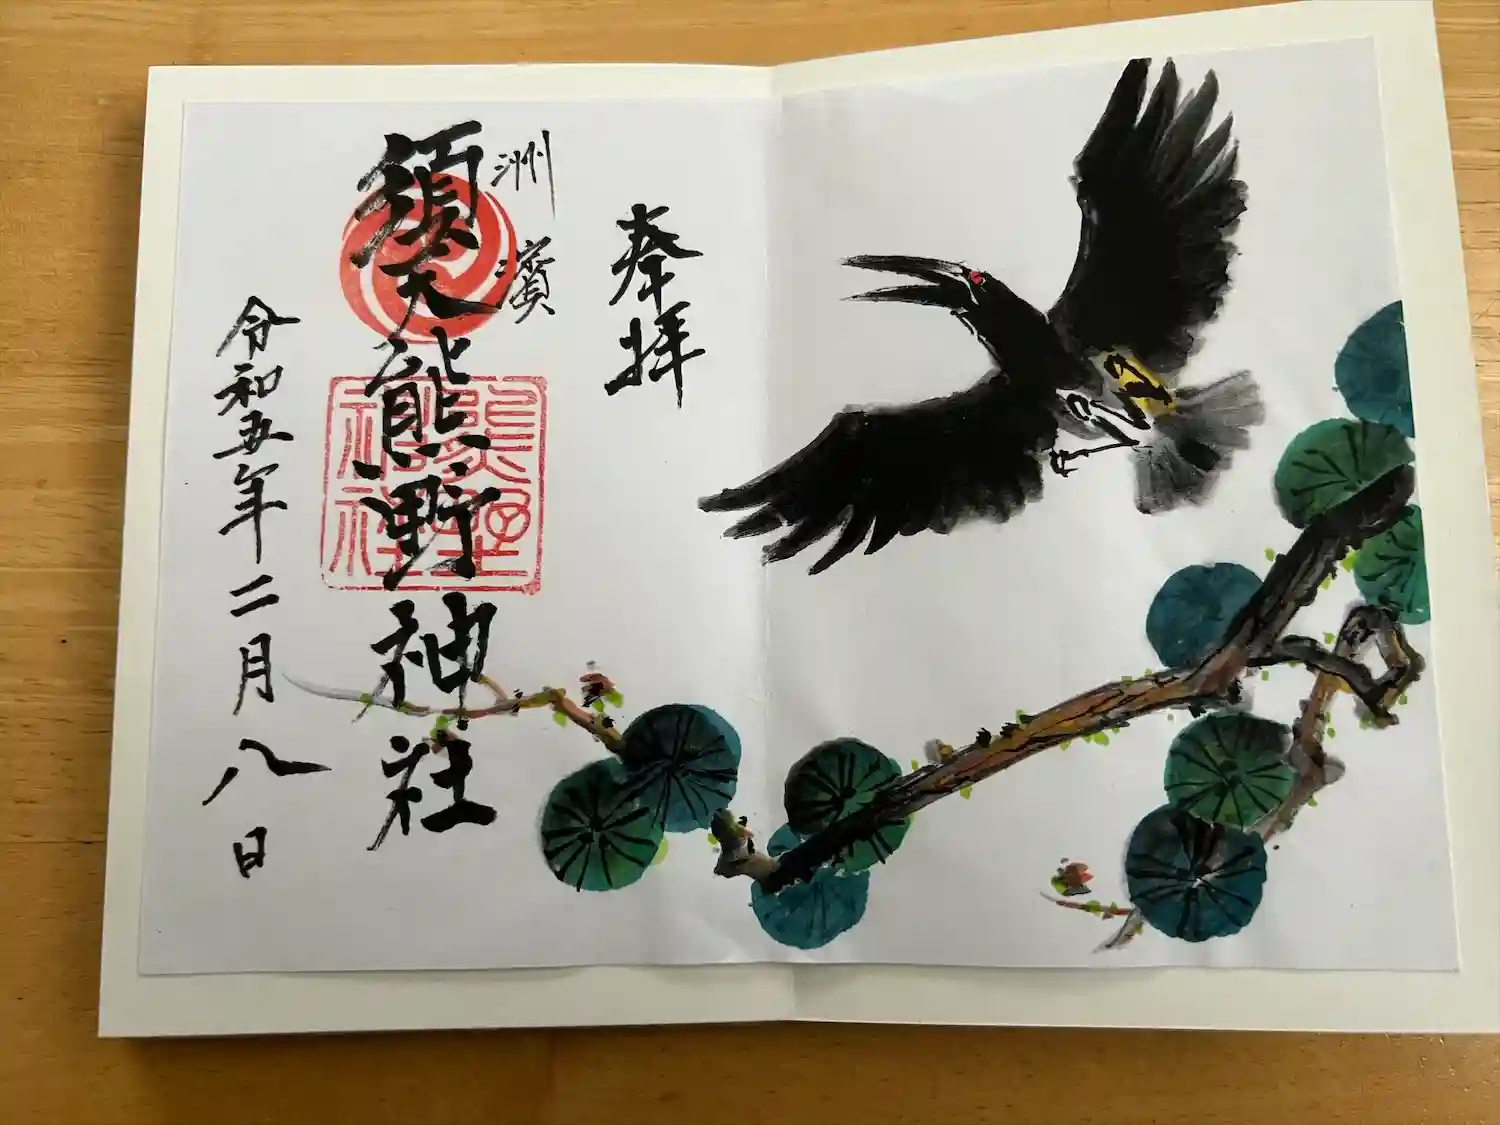 奉拝
洲濱
須天熊野神社
熊野
神社
令和五年二月八日